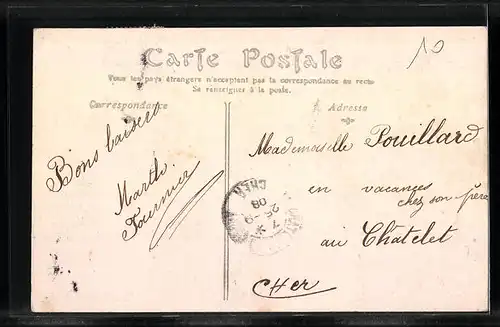 10
Carte Postale
Tous les pays étrangers n'acceptent pas la correspondance au recto
Se renseigner à la poste.
Correspondance
Adresse
Bons baisers
Marthe
Fournier
Mademoiselle Pouillard
en vacances
chez son père
au Châtelet
Cher
CHER
7 *
25-9
08